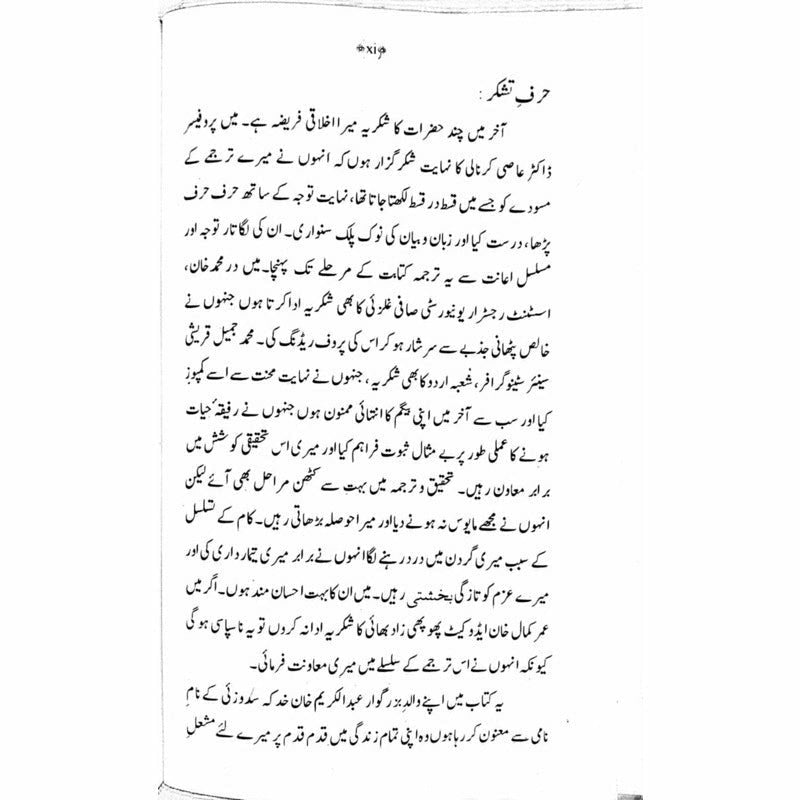 xi
حرفِ تشکر :
آخر میں چند حضرات کا شکریہ میرا اخلاقی فریضہ ہے۔ میں پروفیسر
ڈاکٹر عاصی کرنالی کا نہایت شکر گزار ہوں کہ انہوں نے میرے ترجمے کے
مسودے کو جسے میں قسط در قسط لکھتا جاتا تھا، نہایت توجہ کے ساتھ حرف حرف
پڑھا، درست کیا اور زبان و بیان کی نوک پلک سنواری۔ ان کی لگاتار توجہ اور
مسلسل اعانت سے یہ ترجمہ کتابت کے مرحلے تک پہنچا۔ میں در محمد خان،
اسسٹنٹ رجسٹرار یونیورسٹی صافی غلزئی کا بھی شکریہ ادا کرتا ہوں جنہوں نے
خالص پٹھانی جذبے سے سرشار ہو کر اس کی پروف ریڈنگ کی۔ محمد جمیل قریشی
سینئر سٹینوگرافر، شعبہ اردو کا بھی شکریہ، جنہوں نے نہایت محنت سے اسے کمپوز
کیا اور سب سے آخر میں اپنی بیگم کا انتہائی ممنون ہوں جنہوں نے رفیقۂ حیات
ہونے کا عملی طور پر بے مثال ثبوت فراہم کیا اور میری اس تحقیقی کوشش میں
برابر معاون رہیں۔ تحقیق و ترجمہ میں بہت سے کٹھن مراحل بھی آئے لیکن
انہوں نے مجھے مایوس نہ ہونے دیا اور میرا حوصلہ بڑھاتی رہیں۔ کام کے تسلسل
کے سبب میری گردن میں درد رہنے لگا انہوں نے برابر میری تیمارداری کی اور
میرے عزم کو تازگی بخشتی رہیں۔ میں ان کا بہت احسان مند ہوں۔ اگر میں
عمر کمال خان ایڈوکیٹ پھوپھی زاد بھائی کا شکریہ ادا نہ کروں تو یہ ناسپاسی ہو گی
کیونکہ انہوں نے اس ترجمے کے سلسلے میں میری معاونت فرمائی۔
یہ کتاب میں اپنے والد بزرگوار عبدالکریم خان خدکہ سدوزئی کے نام
نامی سے معنون کر رہا ہوں وہ اپنی تمام زندگی میں قدم قدم پر میرے لئے مشعلِ